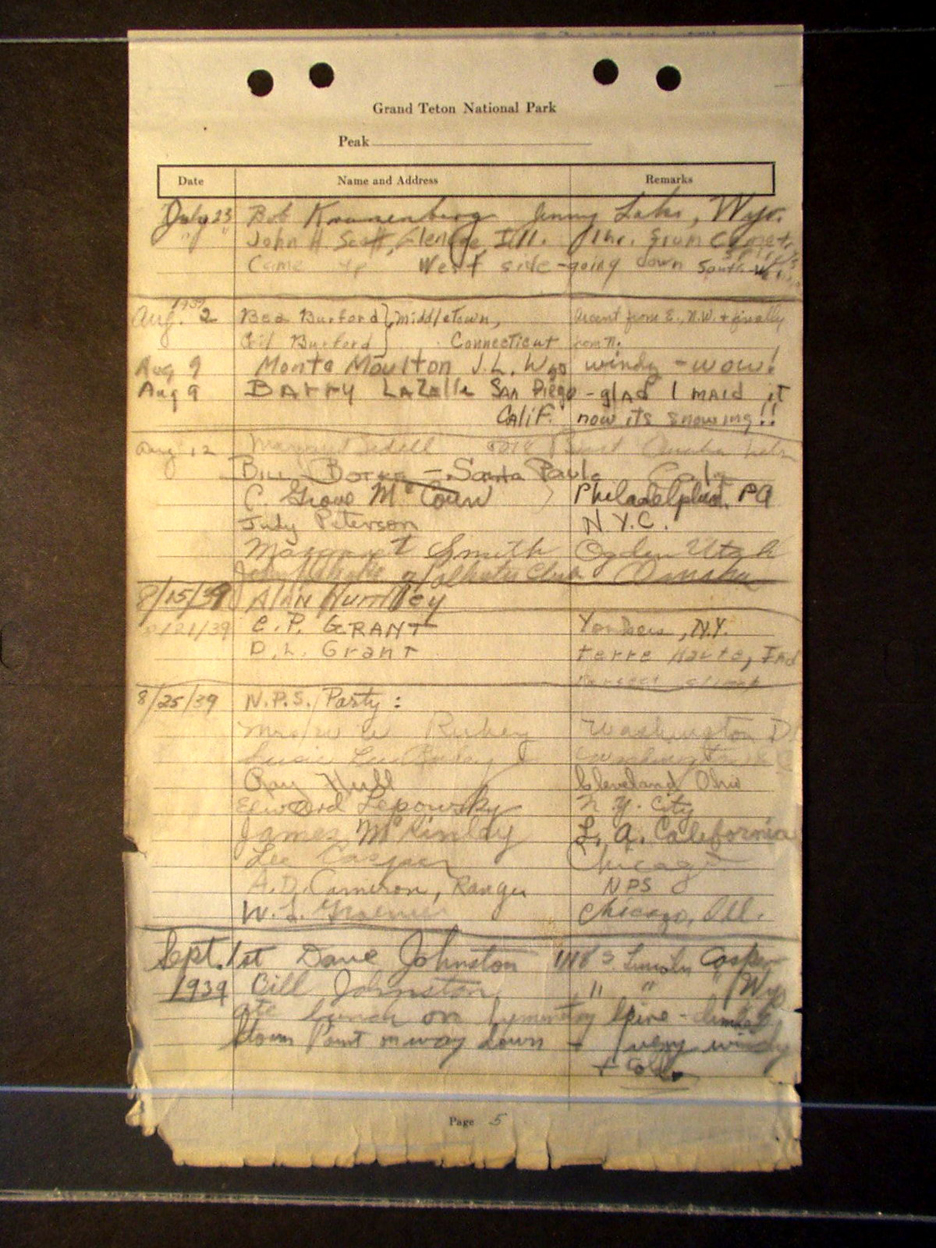 Grand Teton National Park
Peak
Date Name and Address Remarks
July 23 Bob Kranenberg Jenny Lake, Wyo.
" John H. Scott, Glencoe, Ill. 1 hr. from
Came up West side - going down South
1939
Aug. 2 Bea Burford } Middletown, ascent from E., N.W. + finally
Burford } Connecticut
Aug 9 Monte Moulton J.L. Wyo windy - wow!
Aug 9 Barry LaZelle San Diego - glad I maid it
Calif. now its snowing!!
Aug 12 Margaret
Bill - Santa Paula
C. Grove McCown Philadelphia. PA
Judy Peterson N.Y.C.
Margaret Smith Ogden Utah
Omaha
8/15/39 Alan
8/21/39 E.P. GRANT Yonkers, N.Y.
D.L. Grant Terre Haute, Ind
8/25/39 N.P.S. Party:
Washington D
Washington
Ray Hull Cleveland Ohio
Edward Lepowsky N.Y. City
James McKinley L.A. California
Lee Casper Chicago
A.D. Cameron, Ranger NPS
W. L. Chicago, Ill.
Sept. 1st Dave Johnston 1118 S. Lincoln Casper
1939 Bill Johnston " " " Wyo
ate lunch on Symmetry Spire - climbed
Storm Point on way down - very windy
+ cold
Page 5